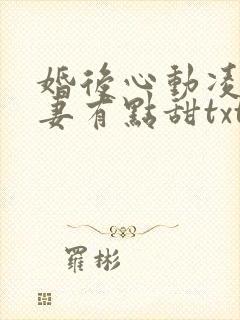 婚後心動凌
妻有點甜txt
羅彬